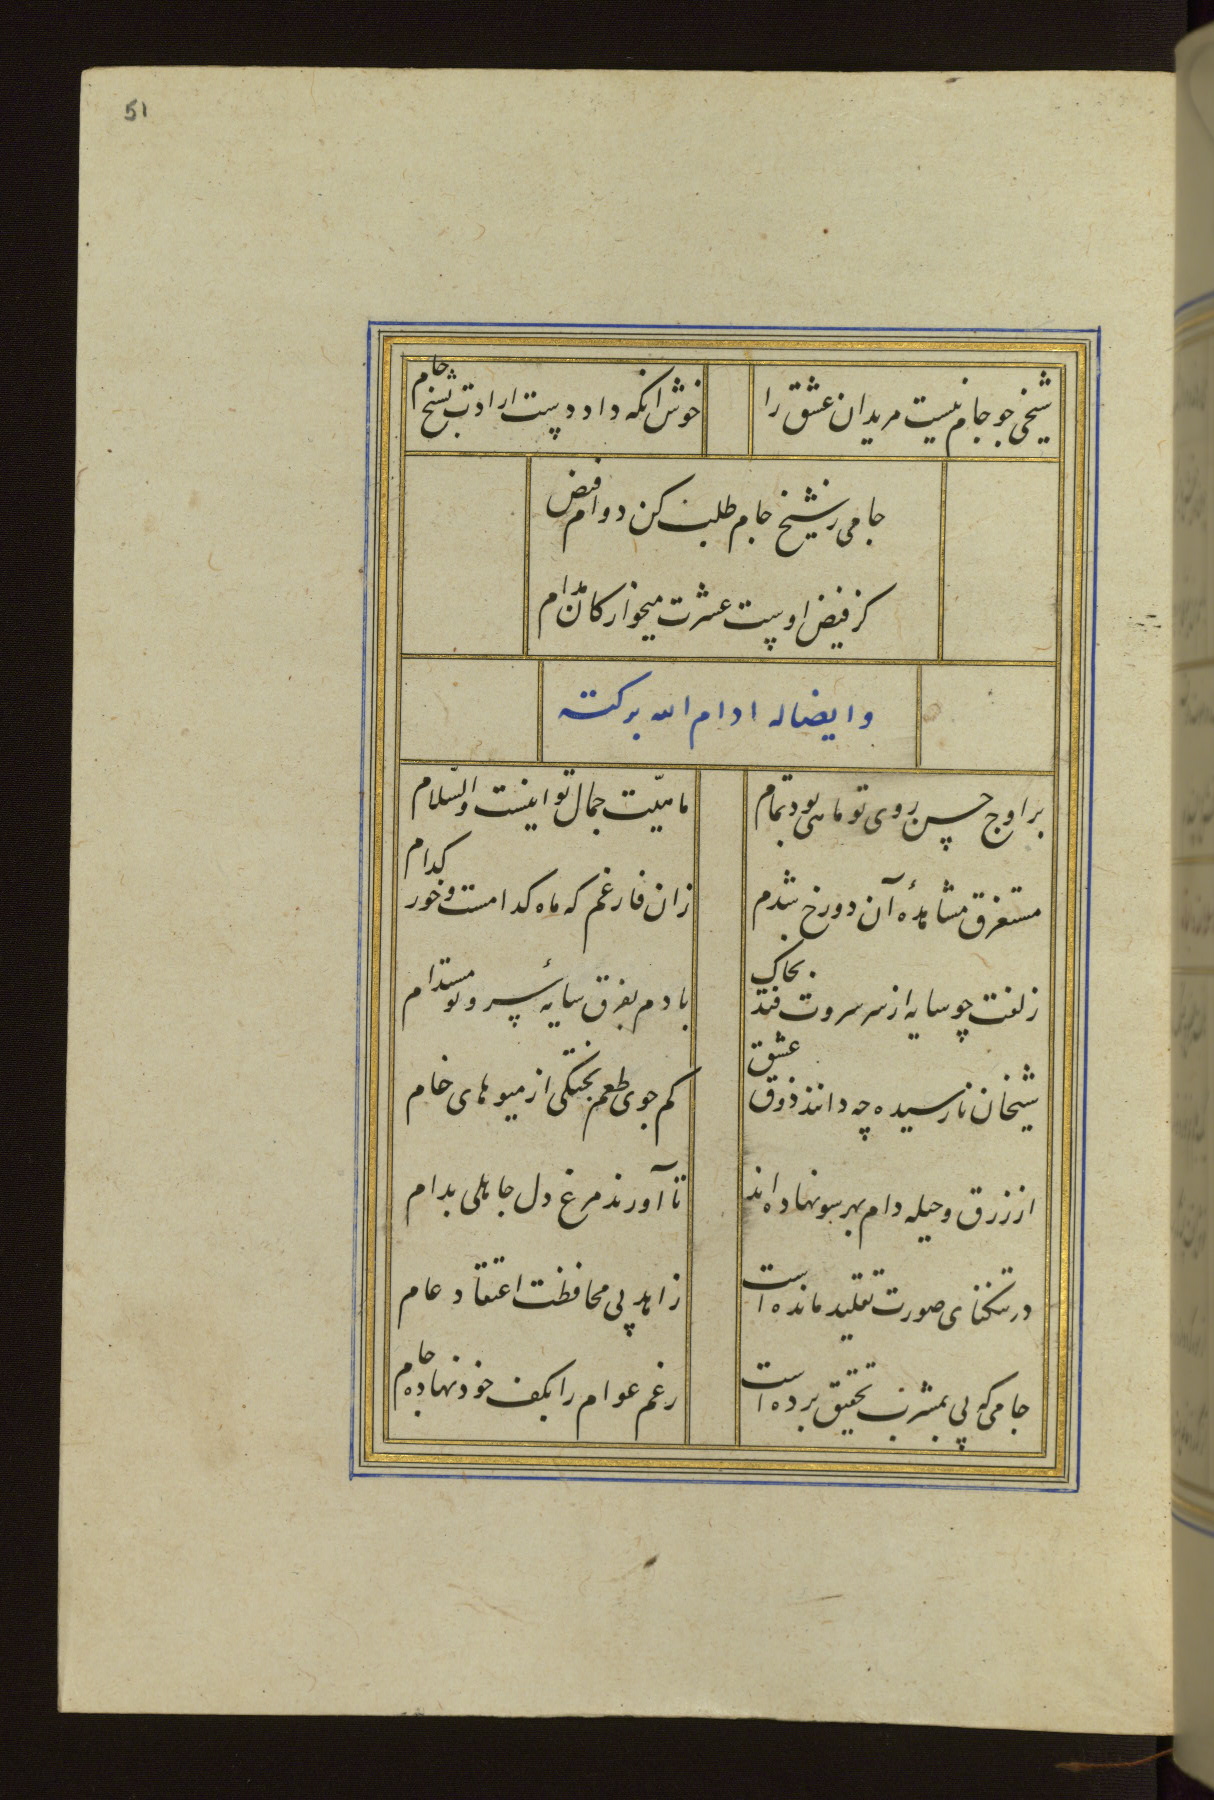 51
شیخی چو جام نیست مریدان عشق را
خوش انکه داد دست ارادت بشیخ جام
جامی ز شیخ جام طلب کن دوام فیض
کز فیض اوست عشرت میخوارکان مدام
وایضاله ادام الله برکته
بر اوج حسن روی تو ماهی بود تمام
ماهیّت جمال تو اینست والسّلام
مستغرق مشاهدهٔ آن دو رخ شدم
زان فارغم که ماه کدامست و خور کدام
زلفت چو سایه از سر سروت فتد بخاک
بادم بفرق سایهٔ سرو تو مستدام
شیخان نارسیده چه دانند ذوق عشق
کم جوی طعم پختکی از میوهای خام
از زرق و حیله دام بهر سو نهاده اند
تا آورند مرغ دل جاهلی بدام
در تنکنای صورت تقلید مانده است
زاهد پی محافظت اعتقاد عام
جامی که پی بمشرب تحقیق برده است
رغم عوام را بکف خود نهاده جام